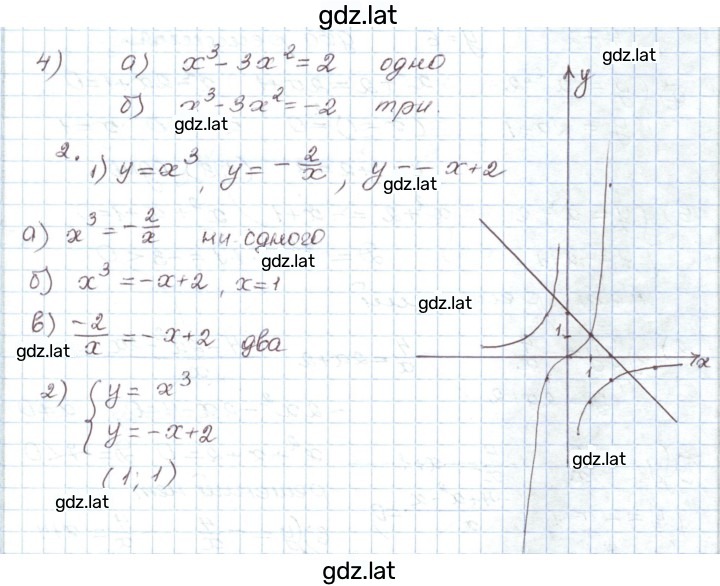 gdz.lat
4) а) x³ - 3x² = 2 одно
gdz.lat
б) x³ - 3x² = -2 три.
gdz.lat
2. 1) y = x³, y = -2/x, y = -x+2
gdz.lat
а) x³ = -2/x ни одного
gdz.lat
б) x³ = -x+2, x=1
в) -2/x = -x+2 два
gdz.lat
2) { y = x³
y = -x+2
(1; 1)
gdz.lat
y
gdz.lat
1
x
1
gdz.lat
gdz.lat